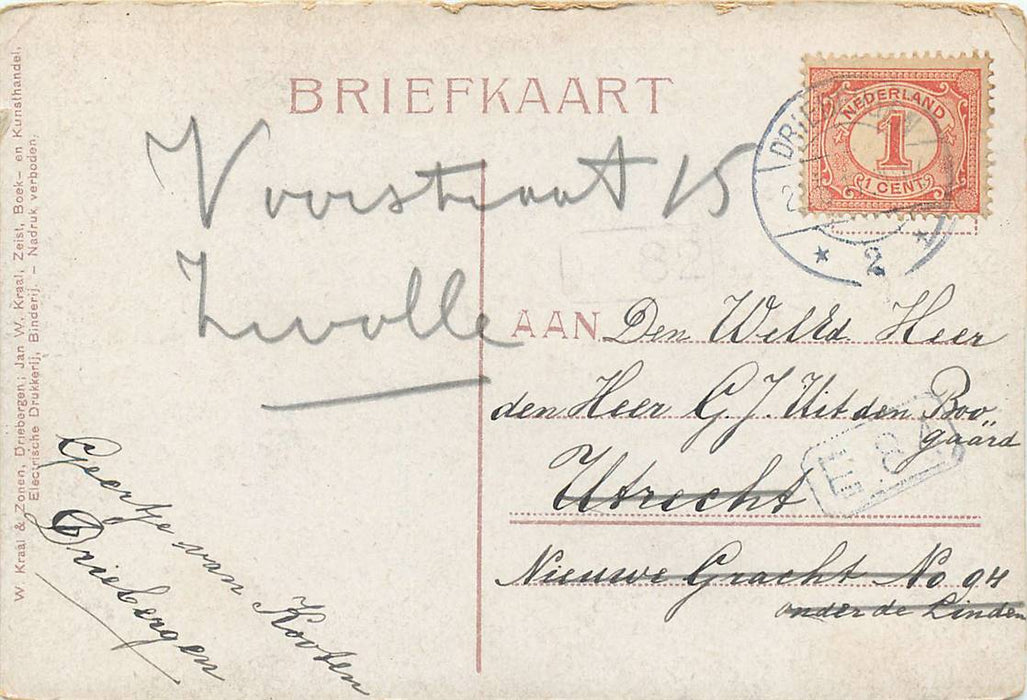 W. Kraal & Zonen, Driebergen; Jan W. Kraal, Zeist, Boek- en Kunsthandel,
Electrische Drukkerij, Binderij. - Nadruk verboden.
BRIEFKAART
NEDERLAND
1
1 CENT
2
Voorstraat 15
Zwolle
82
AAN Den WelEd. Heer
den Heer G J. Uit den Boo
gaard
Utrecht
E.84
Nieuwe Gracht No 94
onder de Linden
Geertje van Kooten
Driebergen